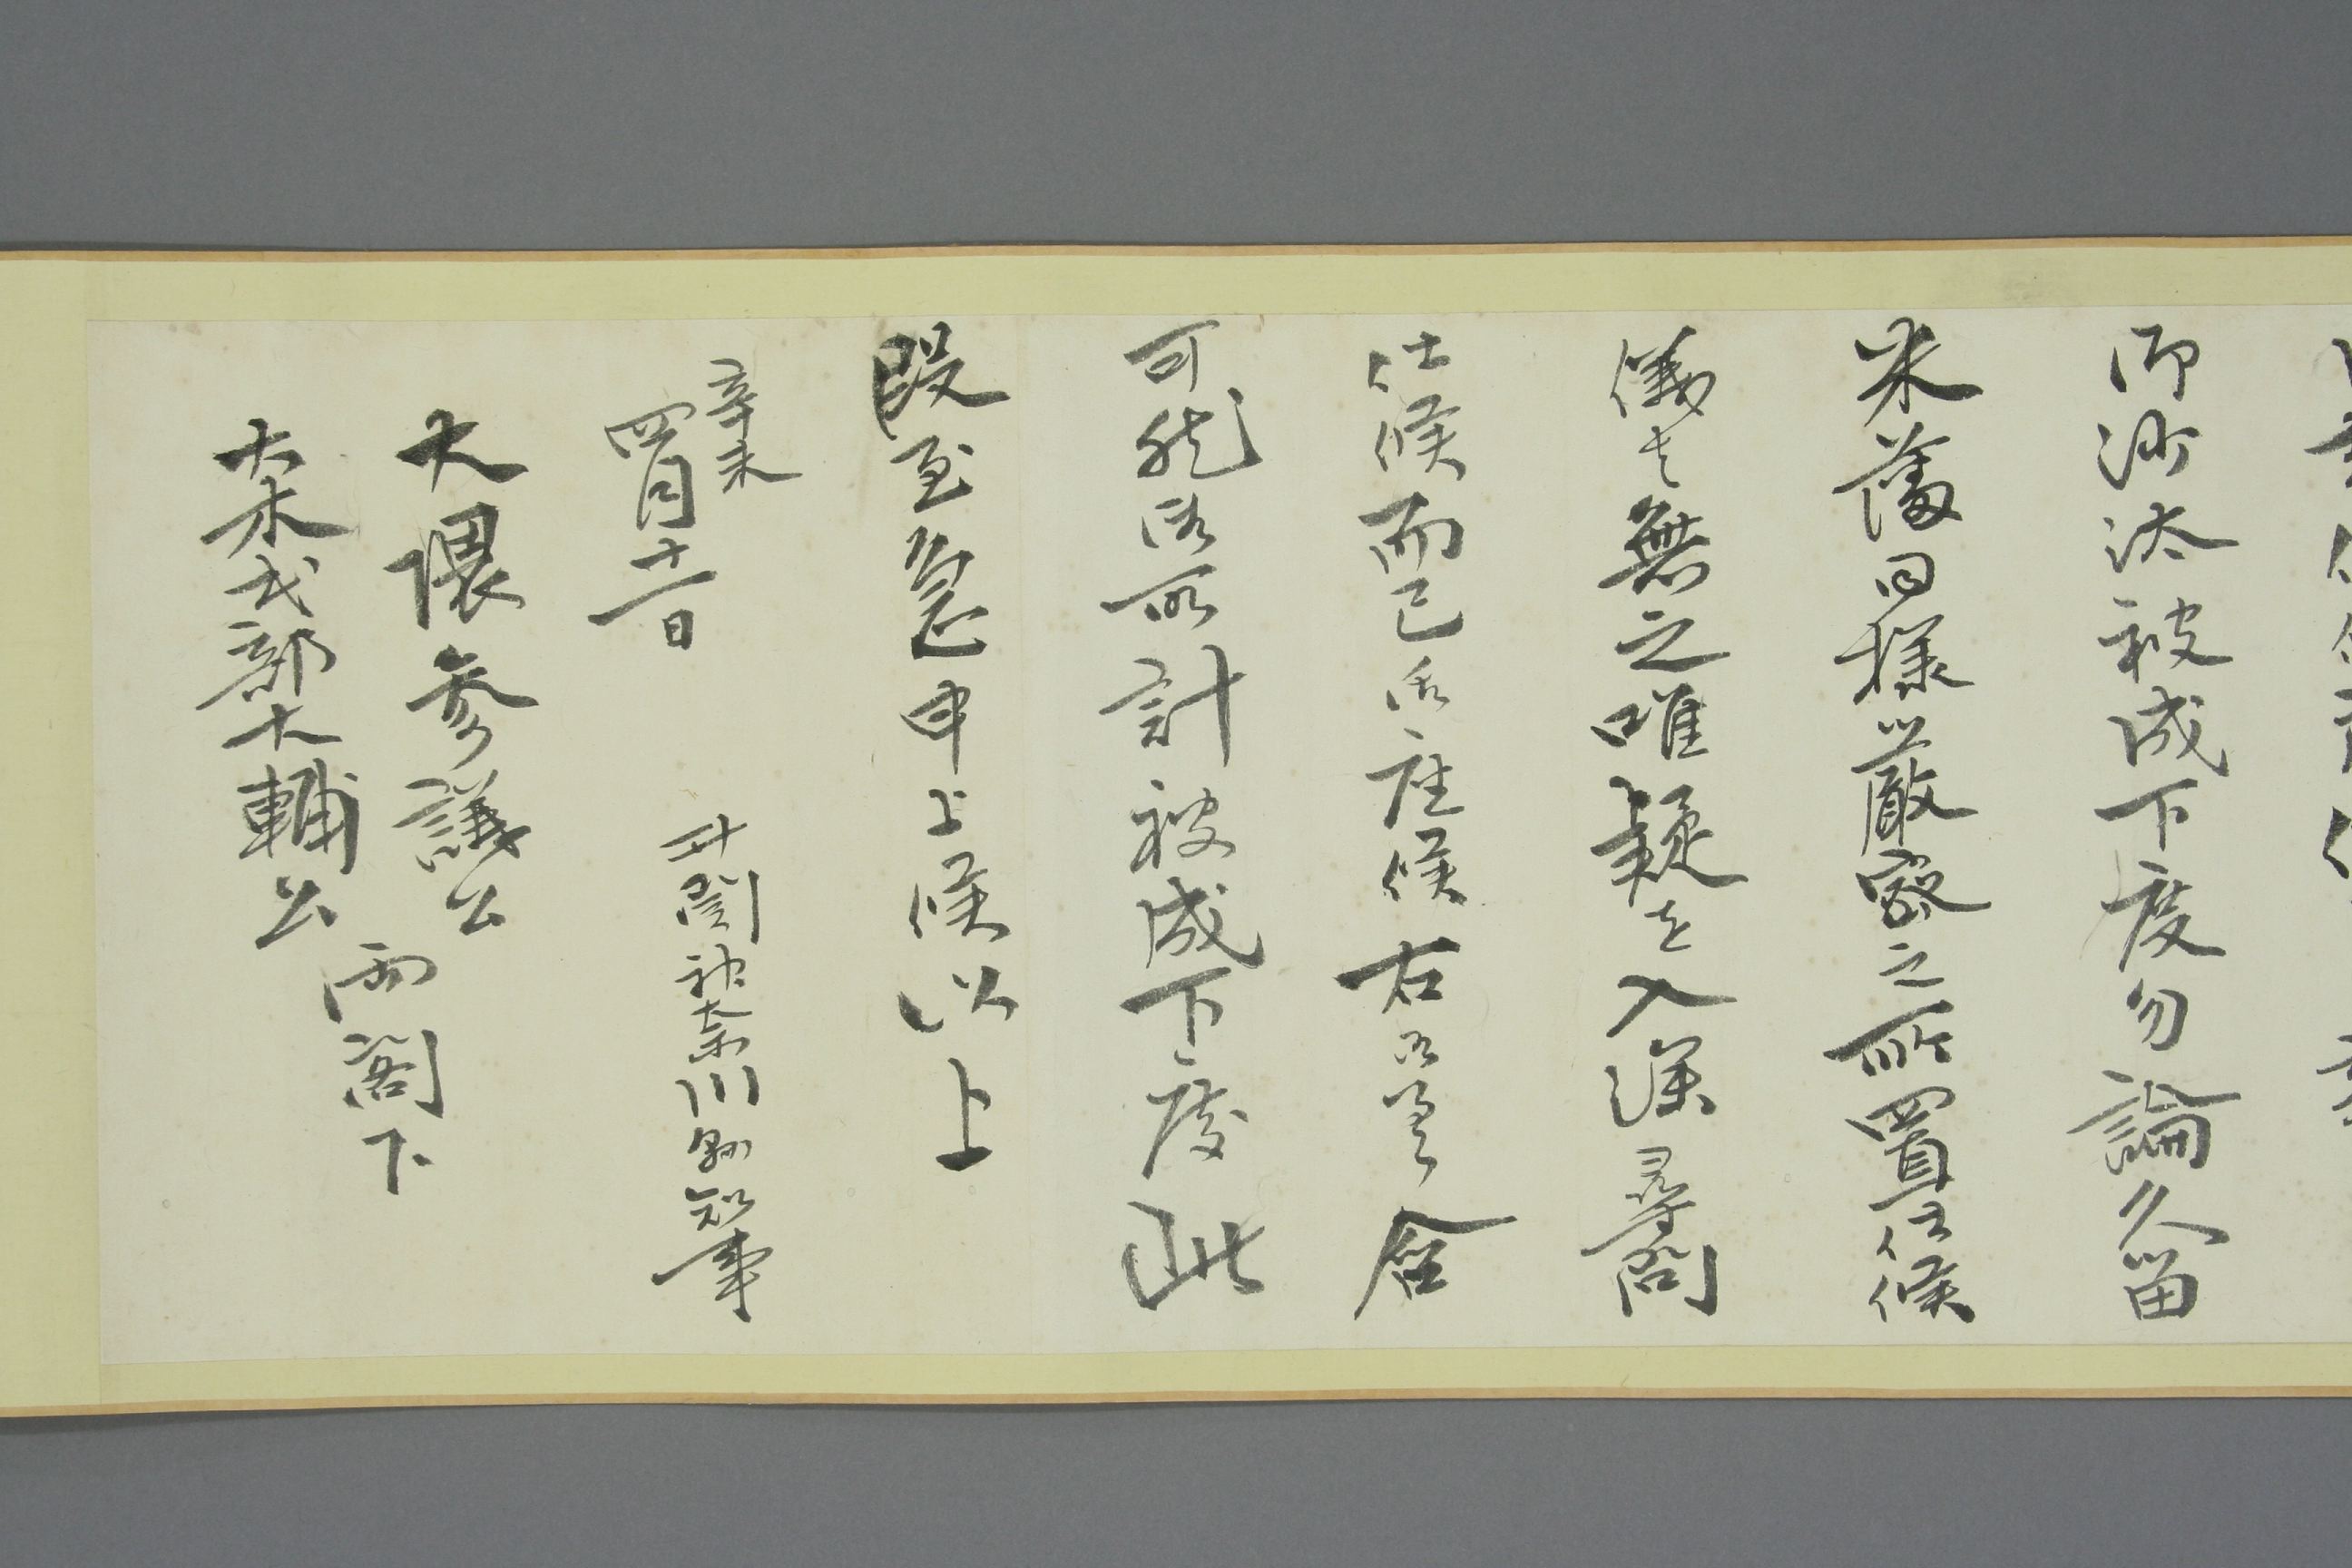 御沙汰被成下度勿論久留
米藩同様厳密之所置仕候
儀者無之唯疑を入深尋問
仕候而已御座候右御差含
可然御所計被成下度此
段至急申上候以上
辛未
四月十二日
井関神奈川県知事
大隈参議公
大木民部大輔公
両閣下